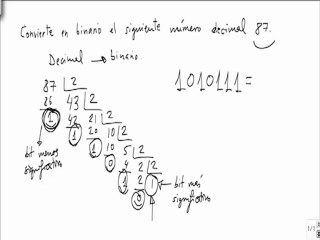 Convierte en binario el siguiente número decimal 87.
Decimal → binario.
1010111=
87 2
86 43 2
1 42 21 2
1 20 10 2
1 10 5 2
0 4 2 2
1 2 1
0
bit menos
significativo
bit más
significativo